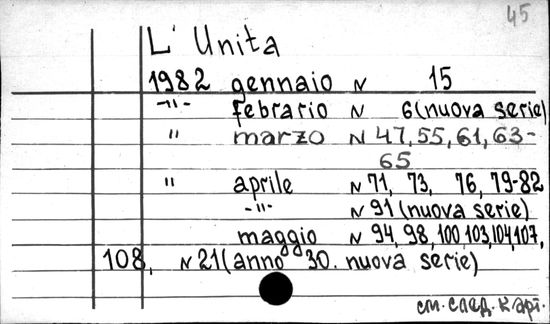 45
L' Unita
1982 gennaio N 15
-"- febrario N 6 (nuova serie)
" marzo N 47, 55, 61, 63-
65
" aprile N 71, 73, 76, 79-82
-"- N 91 (nuova serie)
maggio N 94, 98, 100, 103, 104, 107,
108, N 21 (anno 30. nuova serie)
см. след. карт.